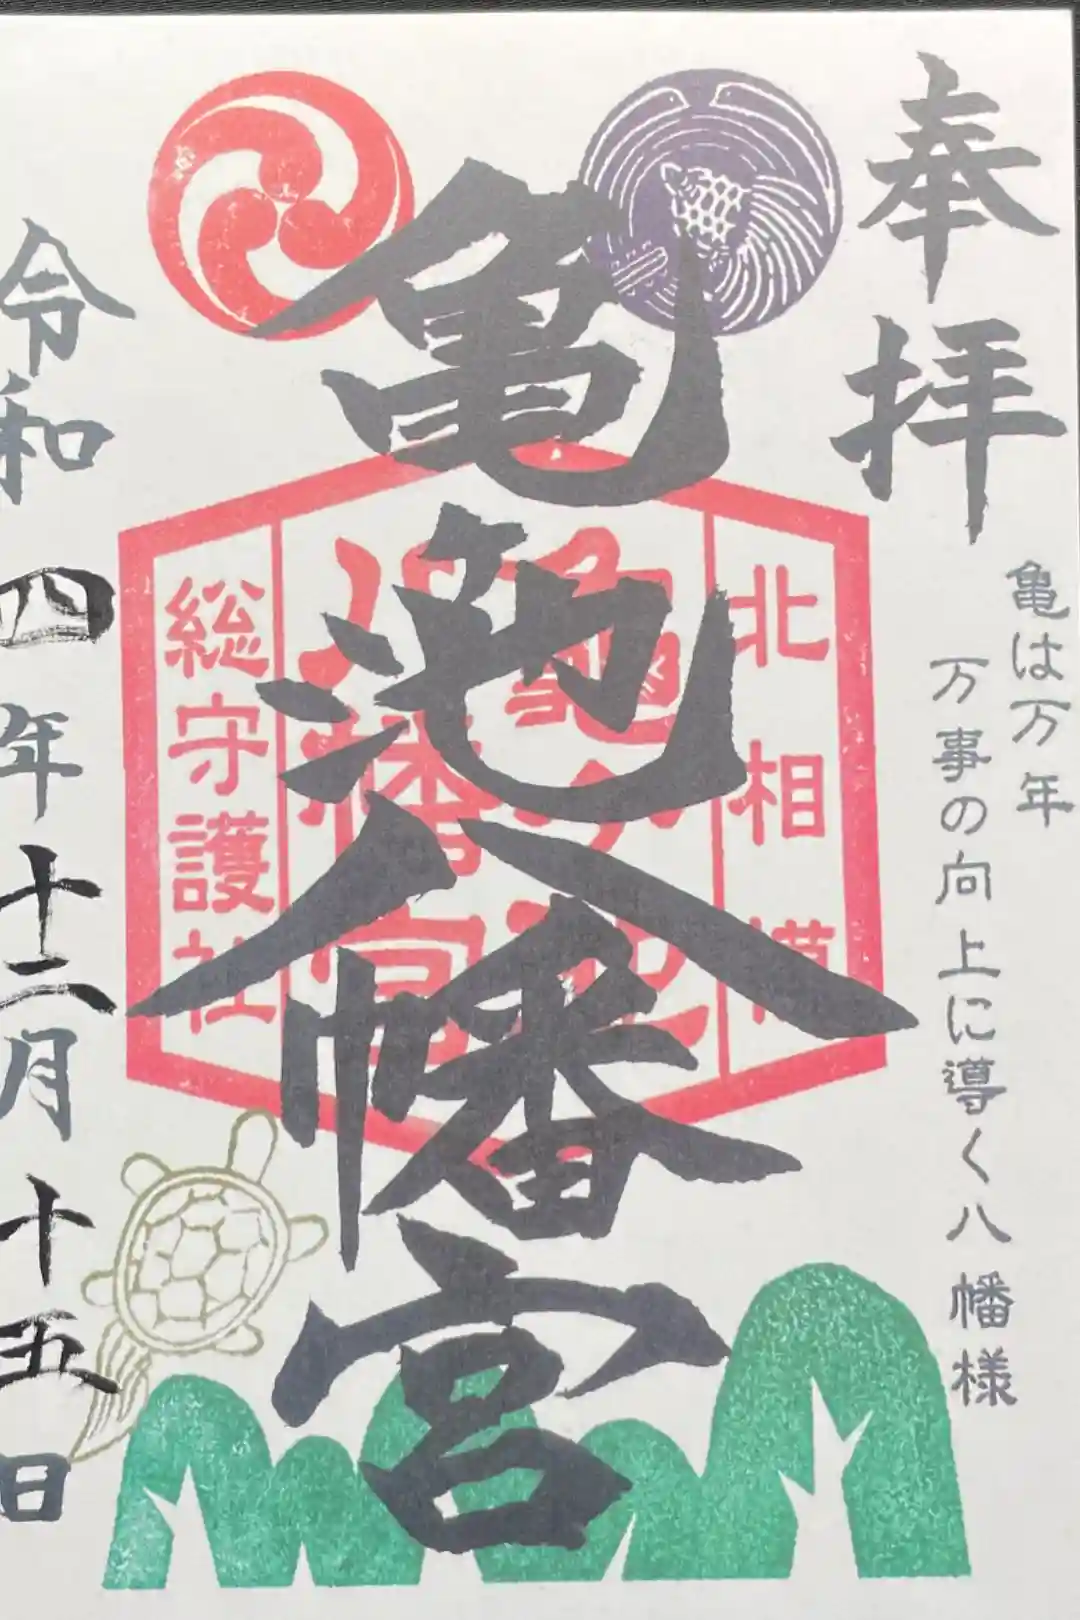 奉拝
亀は万年
万事の向上に導く八幡様
亀池八幡宮
北相模
亀ヶ池
八幡宮
総守護社
令和四年十二月十五日